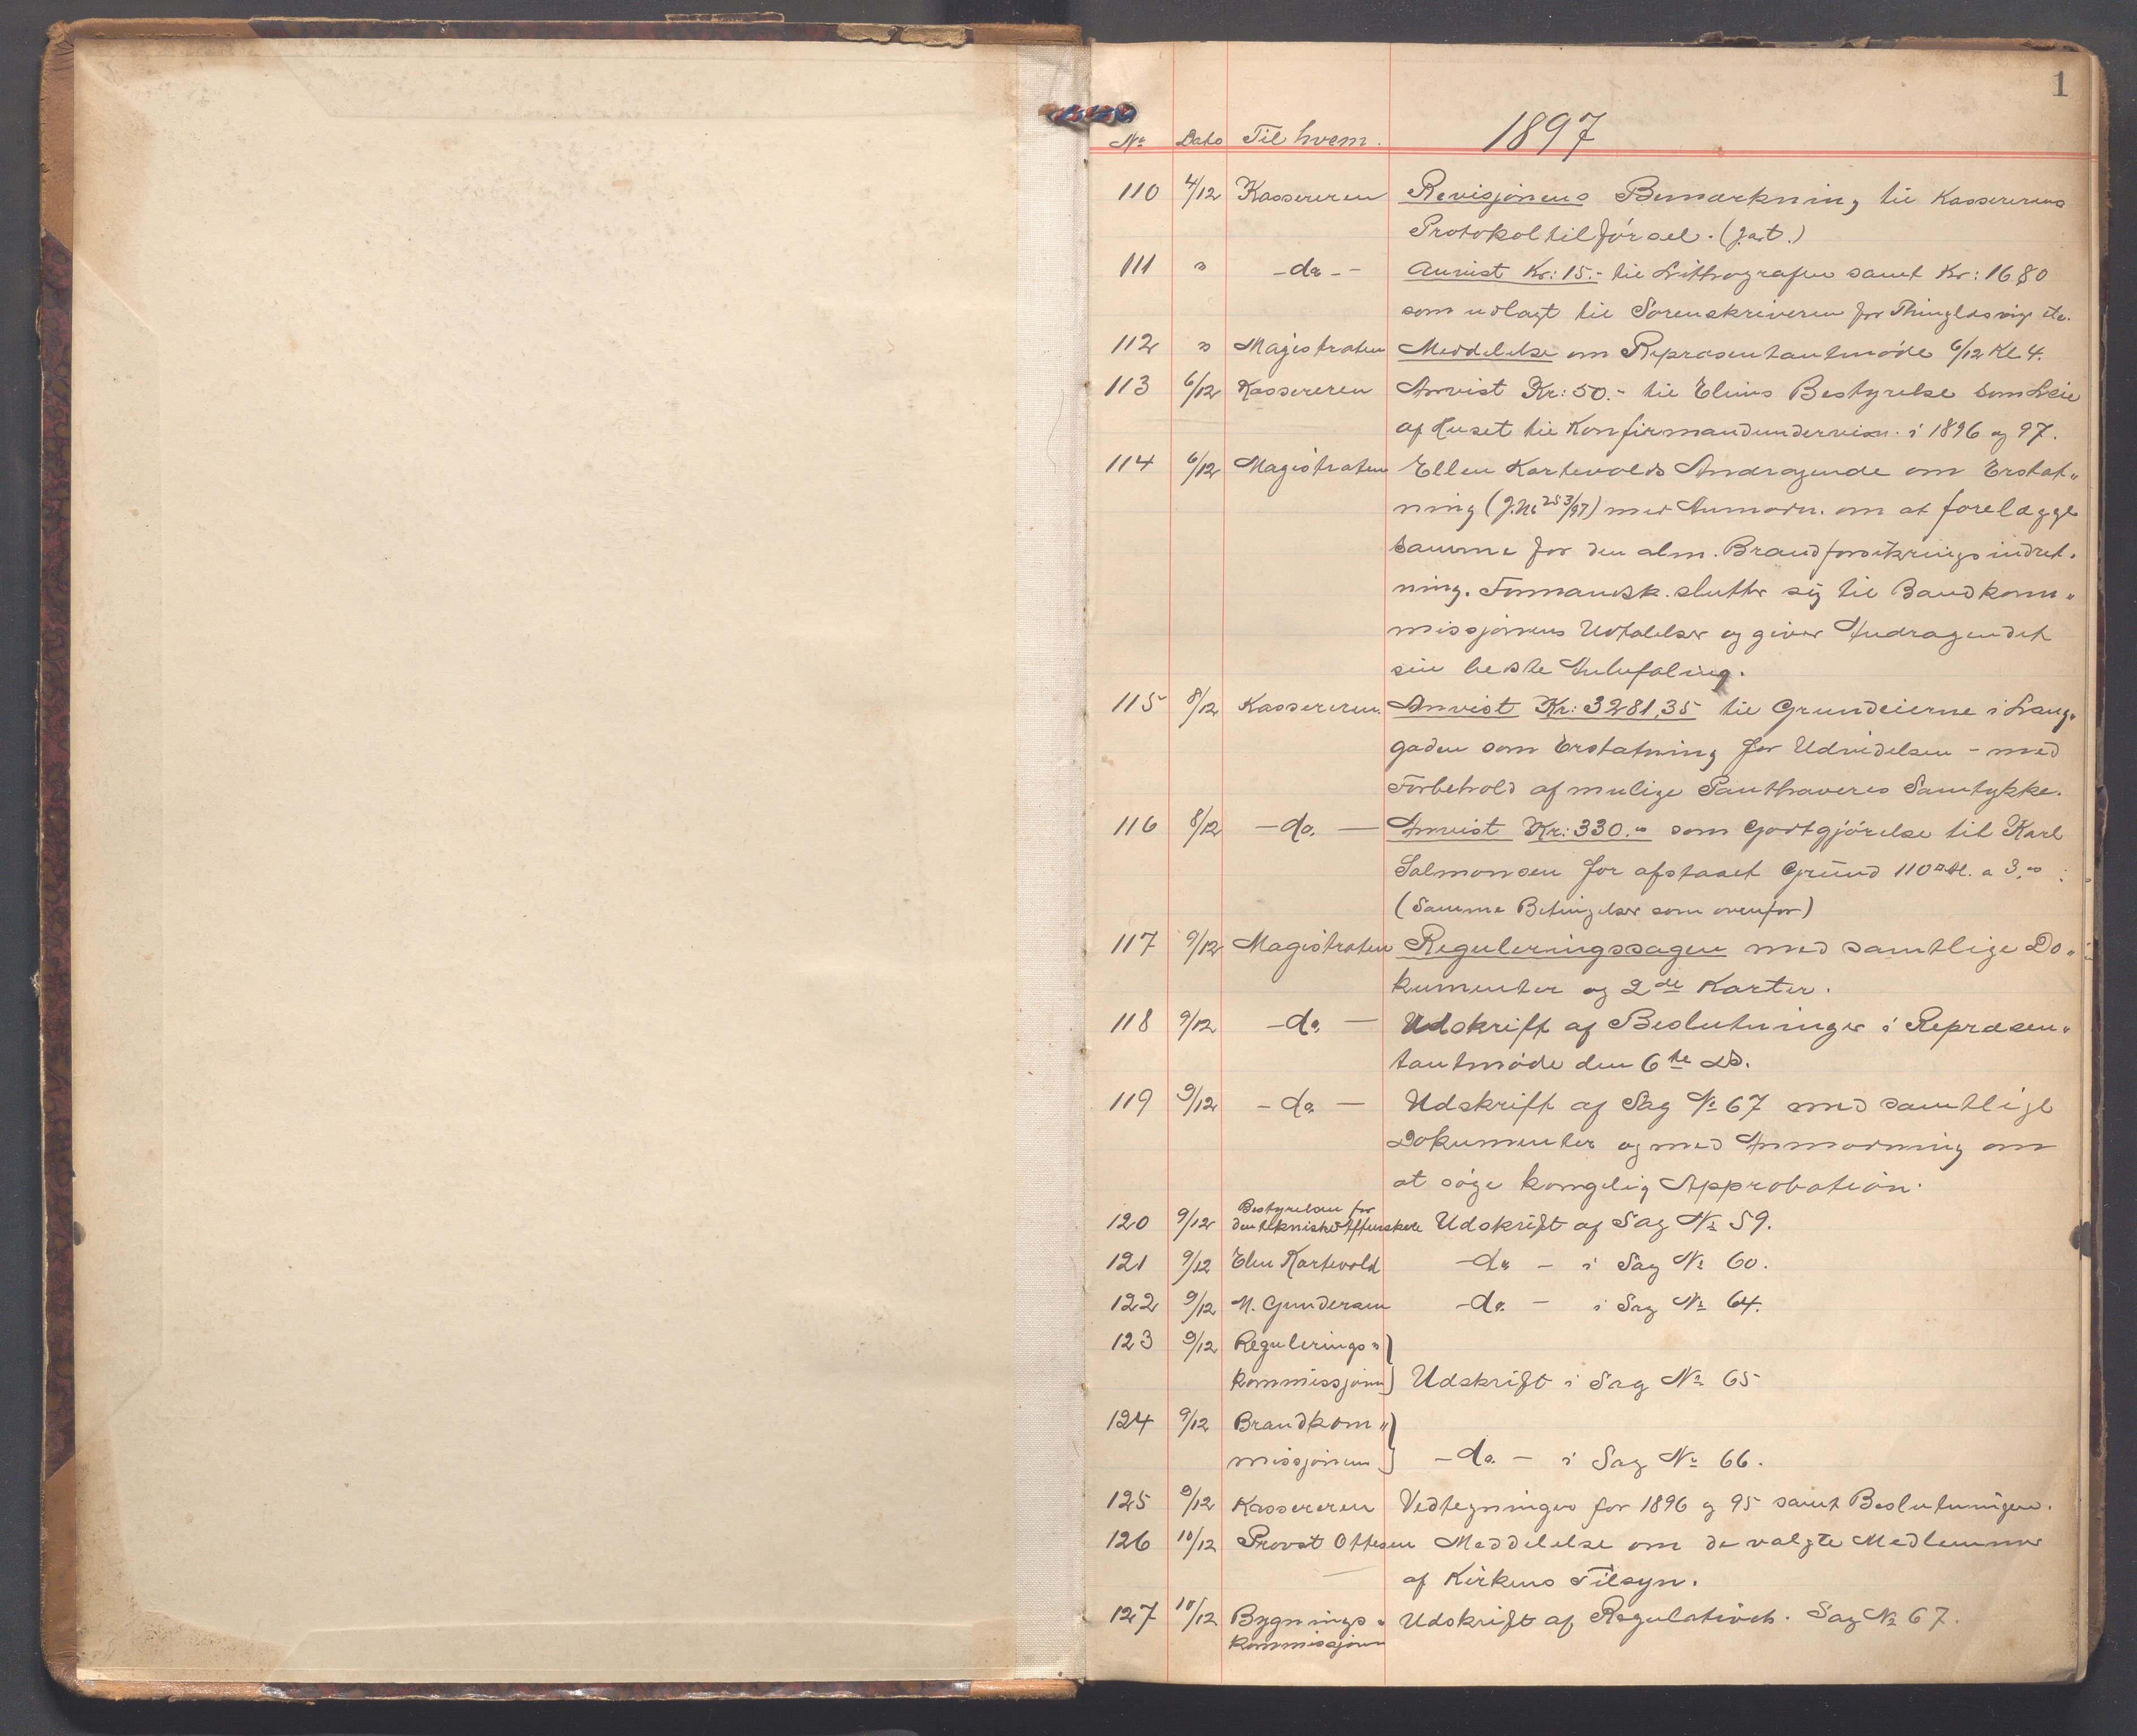 1
1897
No Dato Til hvem.
110 4/12 Kassereren Revisjonens Bemærkning til Kassererens
Protokoltilførsel. (J.art.)
111 " - do - - Anvist Kr: 15.- til Lithografen samt Kr: 16,80
som udlagt til Sorenskriveren for Thinglæsning etc.
112 " Magistraten Meddelelse om Repræsentantmøde 6/12 Kl 4.
113 6/12 Kassereren Anvist Kr: 50.- til Elims Bestyrelse som Leie
af Huset til Konfirmandundervisn. i 1896 og 97.
114 6/12 Magistraten Ellen Kartevolds Andragende om Erstat„
ning (J.No 253/97) med Anmodn. om at forelægge
samme for den alm. Brandforsikringsindret.
ning. Formandsk. slutter sig til Bandkom„
missjonens Udtalelser og giver Andragendet
sin beste Anbefaling.
115 8/12 Kassereren. Anvist Kr: 3281,35 til Grundeierne i Lang„
gaden som Erstatning for Udvidelsen - med
Forbehold af mulige Panthaveres Samtykke.
116 8/12 - do. - Anvist Kr: 330.00 som Godtgjørelse til Karl
Salmonsen for afstaaet Grund 110 □Al. a 3.00
(Samme Betingelser som ovenfor)
117 9/12 Magistraten Reguleringssagen med samtlige Do„
kumenter og 2de Karter.
118 9/12 - do. - Udskrift af Beslutninger i Repræsen„
tantmøde den 6te ds.
119 9/12 - do. - Udskrift af Sag No 67 med samtlige
Dokumenter og med Anmodning om
at søge kongelig Approbation.
Bestyrelsen for
120 9/12 den tekniske Aftenskole Udskrift af Sag No 59.
121 9/12 Elen Kartevold - do - i Sag No 60.
122 9/12 M. Gundersen - do. - i Sag No 64.
123 9/12 Regulerings„ }
kommissjonen } Udskrift i Sag No 65
124 9/12 Brandkom„ }
missjonen } - do. - i Sag No 66.
125 9/12 Kassereren Vedtegninger for 1896 og 95 samt Beslutningen.
126 10/12 Provst Ottesen Meddelelse om de valgte Medlemmer
af Kirkens Tilsyn.
127 10/12 Bygnings„ Udskrift af Regulativet. Sag No 67.
kommissjonen